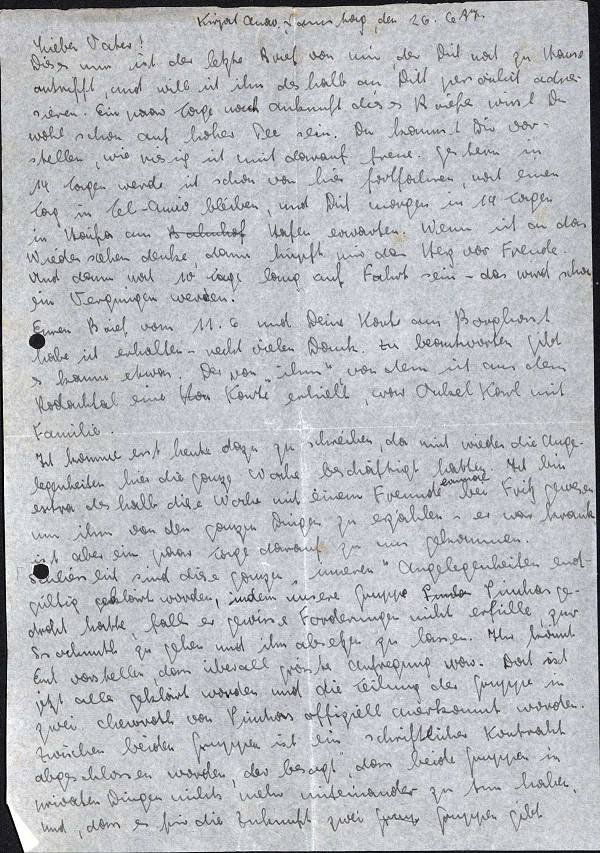 Kirjat Anav, Samstag, den 26. 6. 37.
Lieber Vater!
Dieses nun ist der letzte Brief von mir der Dich noch zu Hause
antrifft, und will ich ihn deshalb an Dich persönlich adres-
sieren. Ein paar Tage nach Ankunft dieses Briefes wirst Du
wohl schon auf hoher See sein. Du kannst Dir vor-
stellen, wie riesig ich mich darauf freue. Gestern in
14 Tagen werde ich schon von hier fortfahren, noch einen
Tag in Tel-Awiw bleiben, und Dich morgen in 14 Tagen
in Haifa am Bahnhof Hafen erwarten. Wenn ich an das
Wiedersehen denke dann hüpft mir das Herz vor Freude.
Und dann noch 10 Tage lang auf Fahrt sein – das wird schon
ein Vergnügen werden.
Euren Brief vom 11. 6 und Deine Karte aus Borghorst
habe ich erhalten – recht vielen Dank. Zu beantworten gibt
es kaum etwas. Der von "ihm" von dem ich aus dem
eine Karte erhielt, war Onkel Karl mit
Familie.
Ich komme erst heute dazu zu schreiben, da mich wieder die Ange-
legenheiten hier die ganze Woche beschäftigt hatten. Ich bin
extra deshalb diese Woche mit einem Freunde bei Fritz gewesen
um ihm von den ganzen Dingen zu erzählen – er war krank
ist aber ein paar Tage darauf zu uns gekommen.
sind diese ganzen "inneren" Angelegenheiten end-
gültig geklärt worden, indem unsere Gruppe Pinchas ge-
droht hatte, falls er gewisse Forderungen nicht erfülle, zur
Ssochnuth zu gehen und ihn absetzen zu lassen. Ihr könnt
Euch vorstellen dass überall grösste Aufregung war. Doch ist
jetzt alles geklärt worden und die Teilung der Gruppe in
zwei chewroth von Pinchas offiziell anerkannt worden.
Zwischen beiden Gruppen ist ein schriftlicher Kontrakt
abgeschlossen worden, der besagt, dass beide Gruppen in
privaten Dingen nichts mehr miteinander zu tun haben,
und, dass es für die Zukunft zwei Gruppen gibt